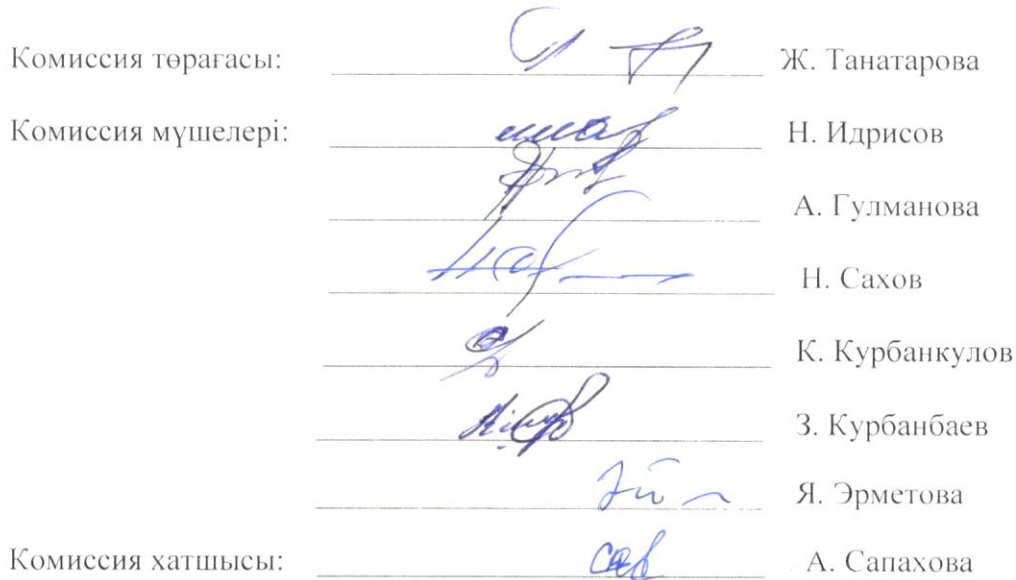 Комиссия төрағасы: Ж. Танатарова
Комиссия мүшелері: Н. Идрисов
А. Гулманова
Н. Сахов
К. Курбанкулов
З. Курбанбаев
Я. Эрметова
Комиссия хатшысы: А. Сапахова